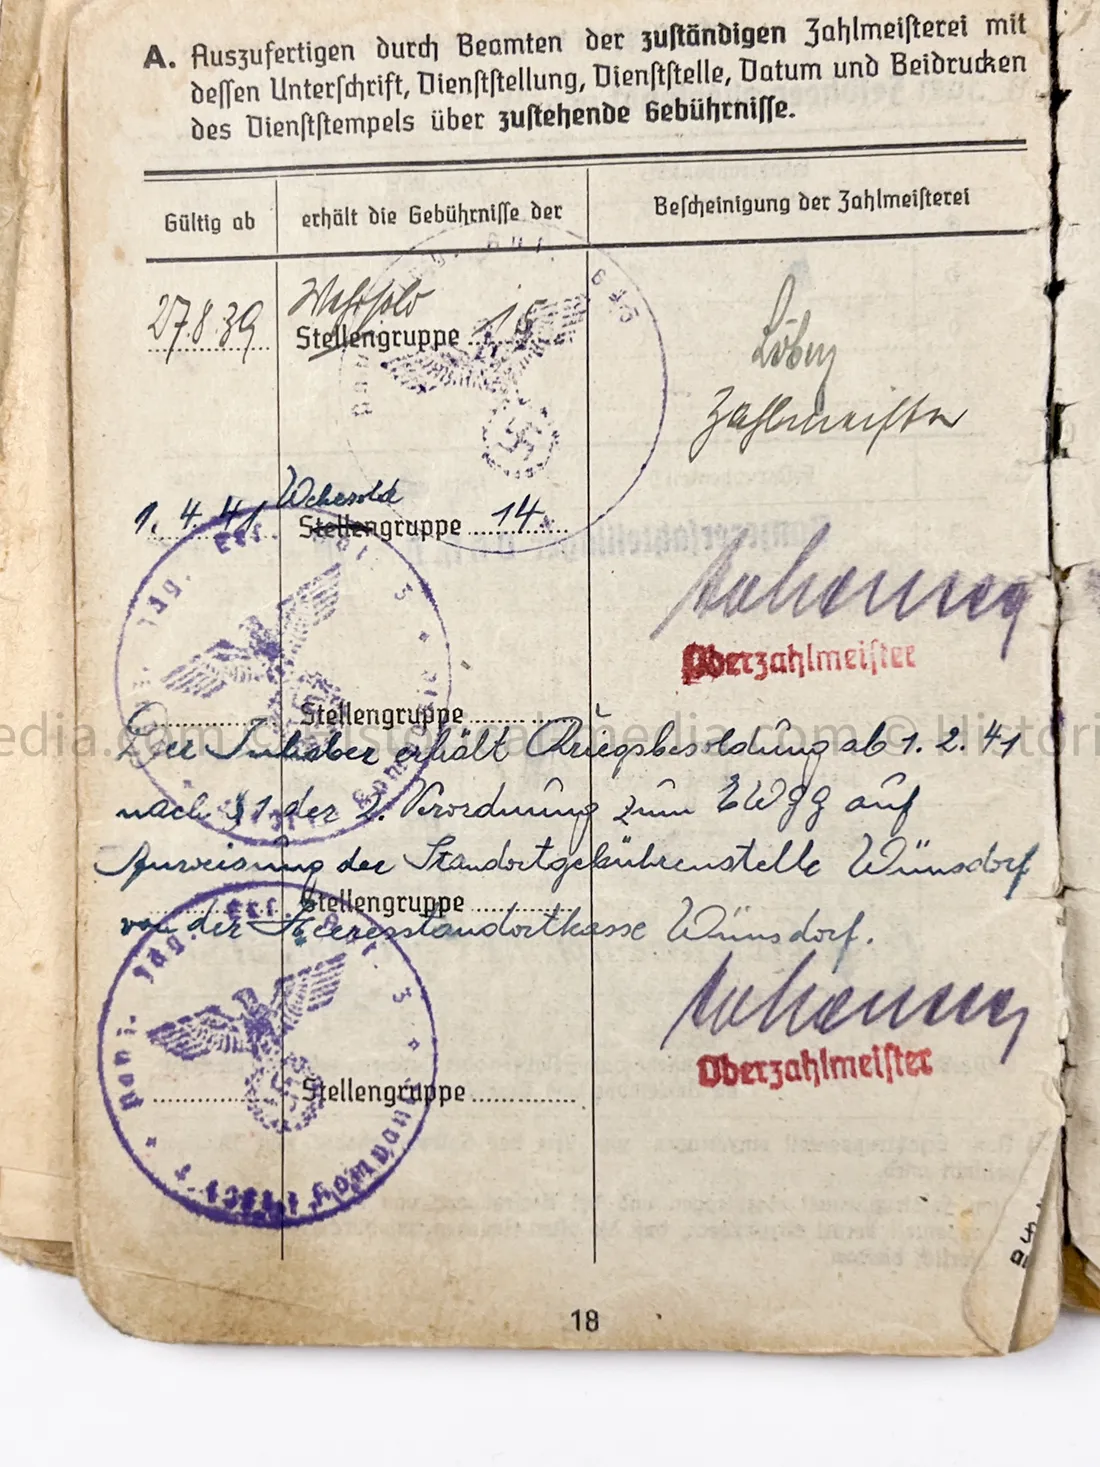 A. Auszufertigen durch Beamten der zuständigen Zahlmeisterei mit
dessen Unterschrift, Dienststellung, Dienststelle, Datum und Beidrucken
des Dienststempels über zustehende Gebührnisse.
Gültig ab
erhält die Gebührnisse der
Bescheinigung der Zahlmeisterei
27.8.39
Wehrsold
Stellengruppe
Zahlmeister
1. 4. 41
Wehrsold
Stellengruppe 14
Oberzahlmeister
Jäg. Ers.
Stellengruppe
Der Inhaber erhält Kriegsbesoldung ab 1. 2. 41
nach § 1 der 2. Verordnung zum EWGG auf
Anweisung der Standortgebührenstelle Wünsdorf
Stellengruppe
von der Heeresstandortkasse Wünsdorf.
Oberzahlmeister
Stellengruppe
Panz. Jäg. Ers. 3
Kompanie
18
© Historicalmedia.com